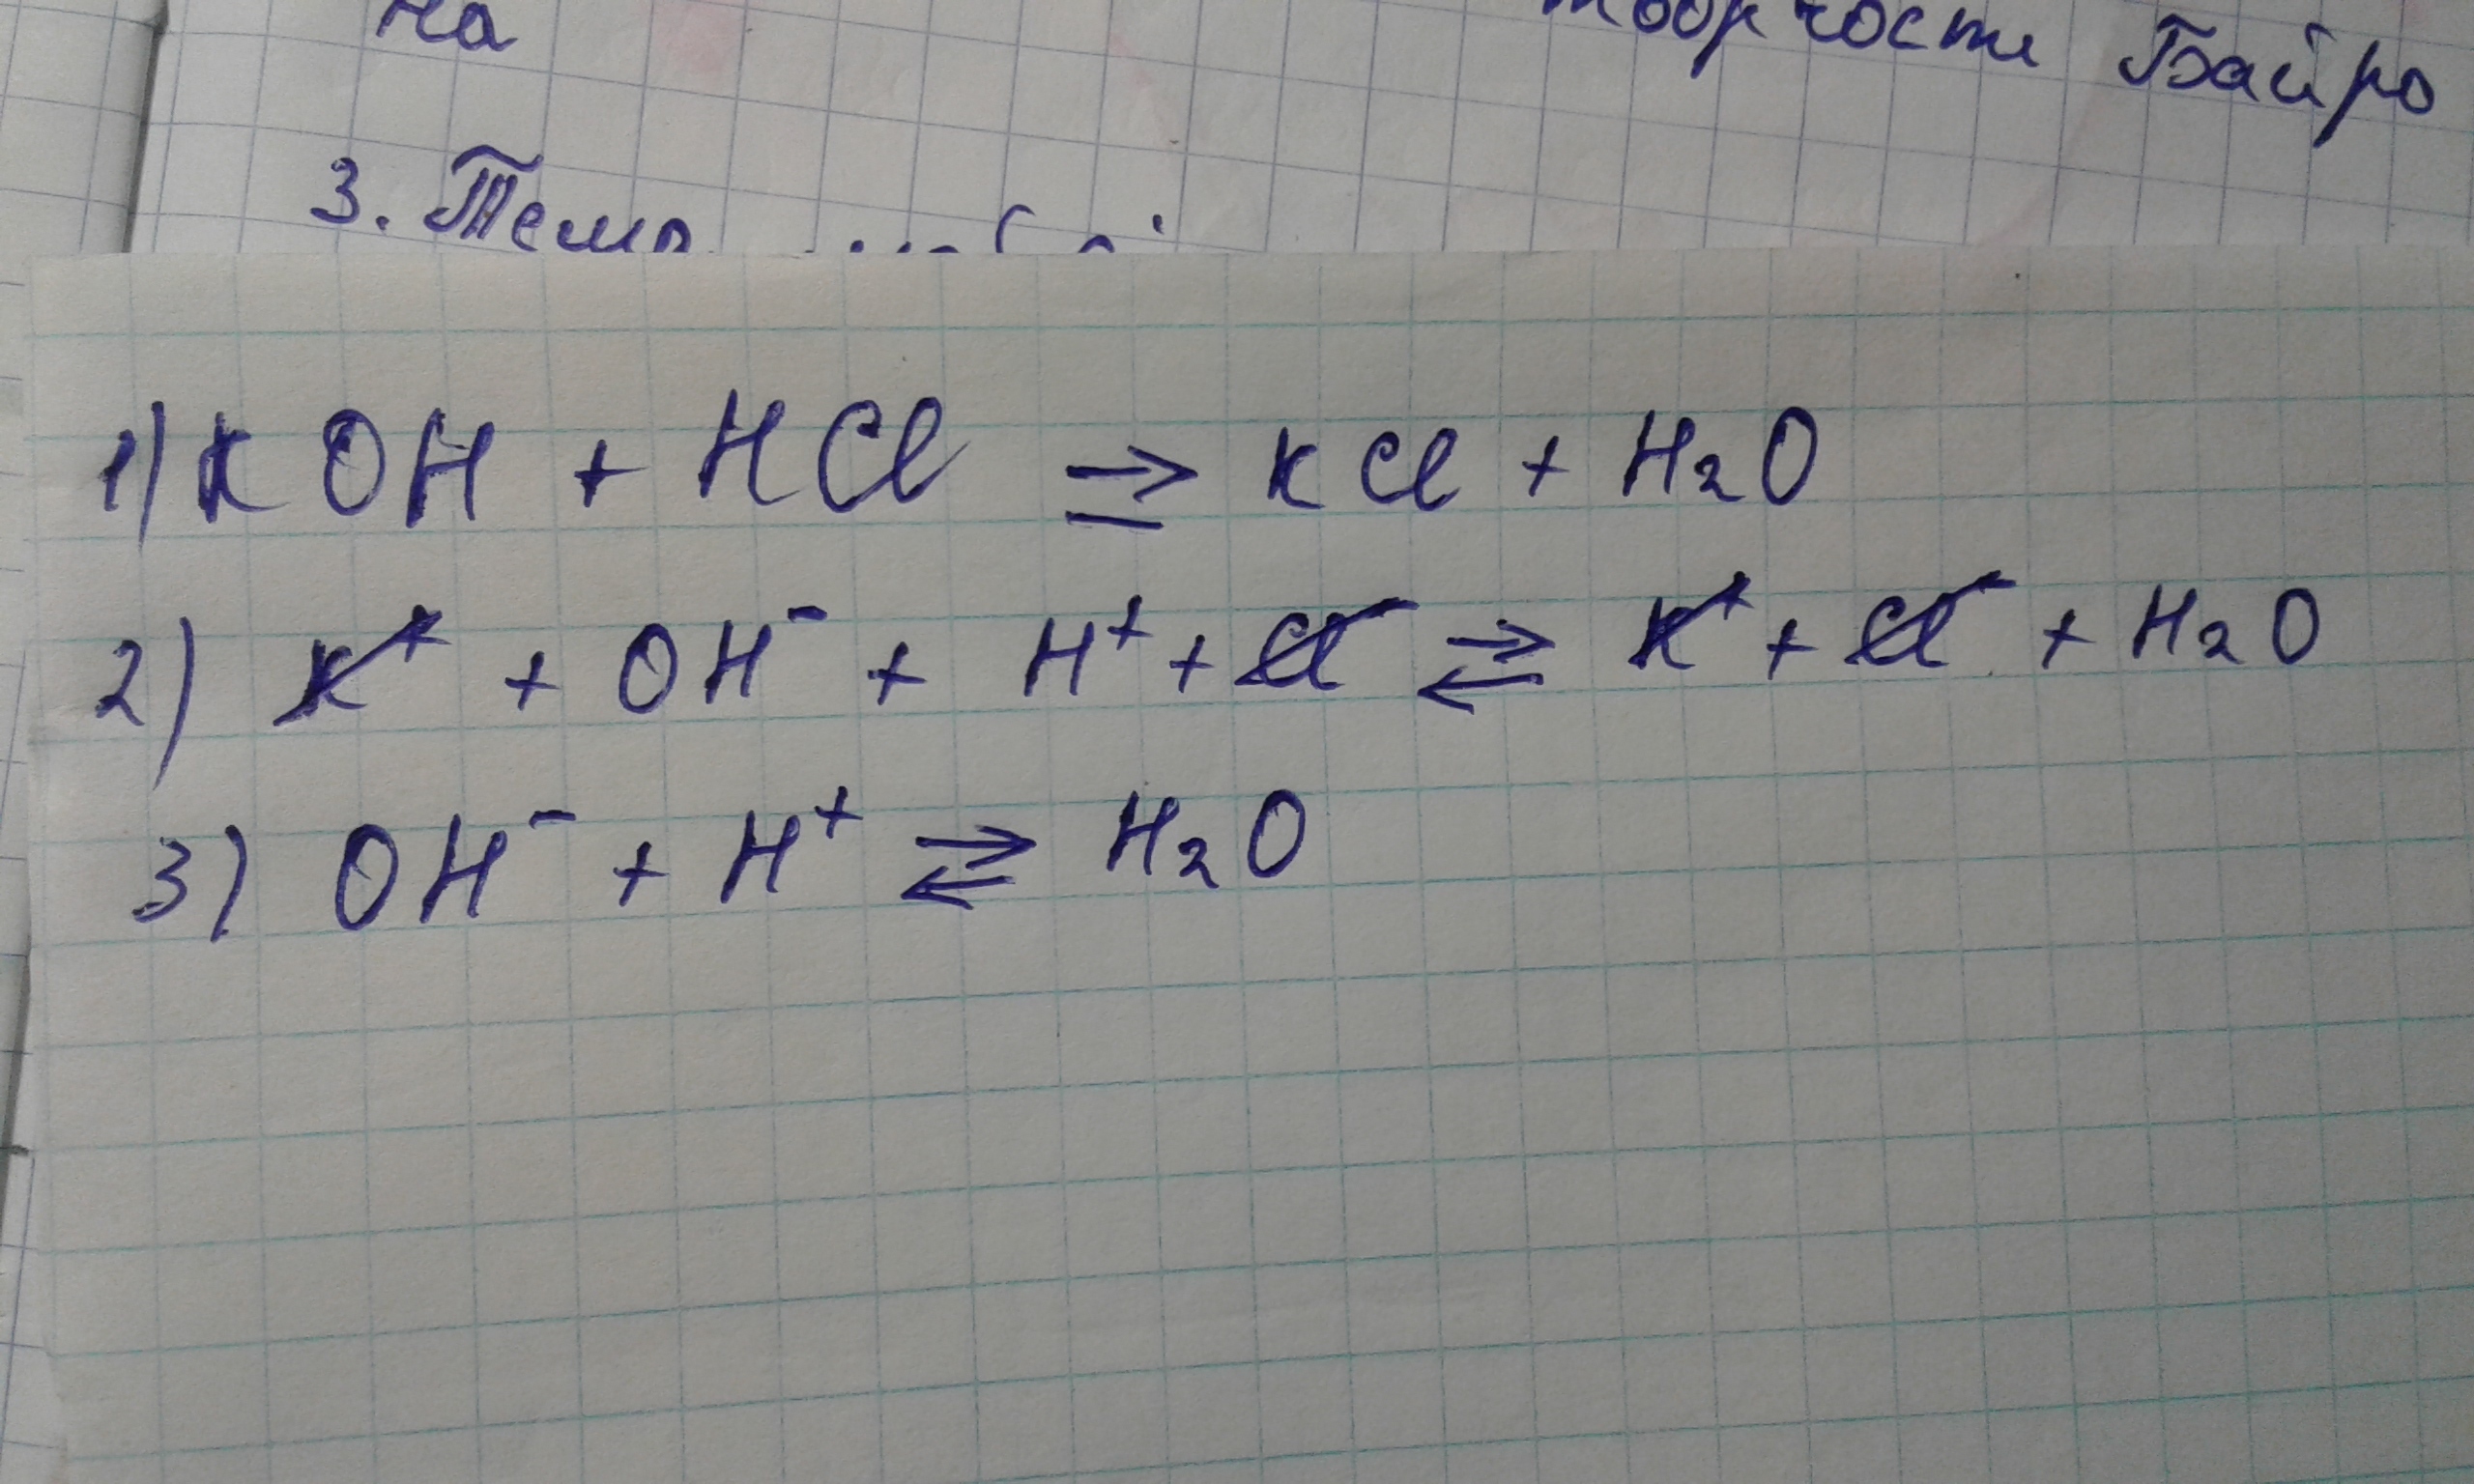 на творчости Байро
3. Тема
1) KOH + HCl ⇒ KCl + H₂O
2) K⁺ + OH⁻ + H⁺ + Cl⁻ ⇄ K⁺ + Cl⁻ + H₂O
3) OH⁻ + H⁺ ⇄ H₂O